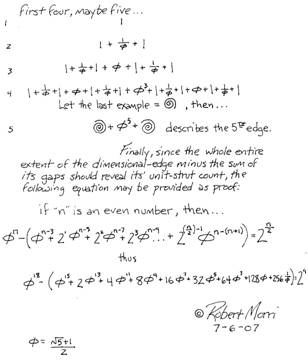 first four, maybe five...
1 1
2 1 + 1/ϕ + 1
3 1 + 1/ϕ + 1 + ϕ + 1 + 1/ϕ + 1
4 1 + 1/ϕ + 1 + ϕ + 1 + 1/ϕ + 1 + ϕ³ + 1 + 1/ϕ + 1 + ϕ + 1 + 1/ϕ + 1
Let the last example = , then...
5 + ϕ⁵ + describes the 5th edge.
Finally, since the whole entire
extent of the dimensional-edge minus the sum of
its gaps should reveal its' unit-strut count, the
following equation may be provided as proof:
if "n" is an even number, then...
ϕⁿ - (ϕⁿ⁻³ + 2¹ϕⁿ⁻⁵ + 2²ϕⁿ⁻⁷ + 2³ϕⁿ⁻⁹ ... + 2^((n/2)-1) ϕ^(n-(n+1))) = 2^(n/2)
thus
ϕ¹⁸ - (ϕ¹⁵ + 2ϕ¹³ + 4ϕ¹¹ + 8ϕ⁹ + 16ϕ⁷ + 32ϕ⁵ + 64ϕ³ + 128ϕ + 256 1/ϕ) = 2⁹
© Robert Morri
7-6-07
ϕ = (√5+1)/2